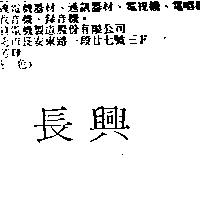 電機器材、通訊器材、電視機、電唱
收音機、錄音機。
電機製造股份有限公司
長安東路一段廿七號三F
長興